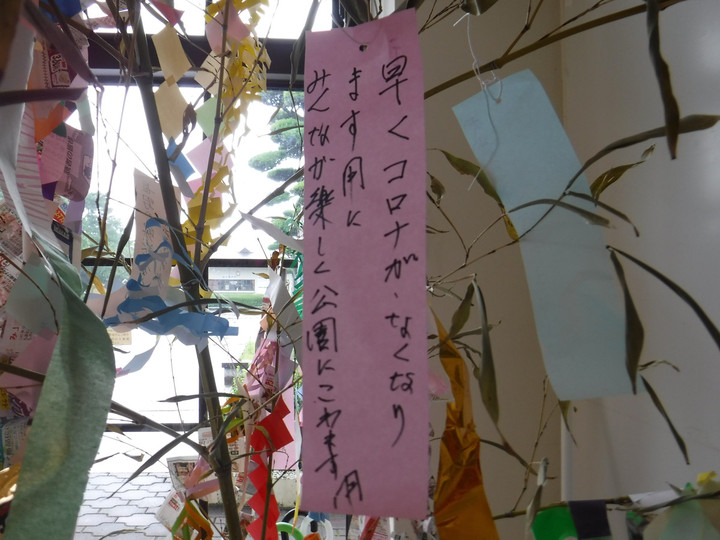 早くコロナがなくなり
ます用に
みんなが楽しく公園にこれます用